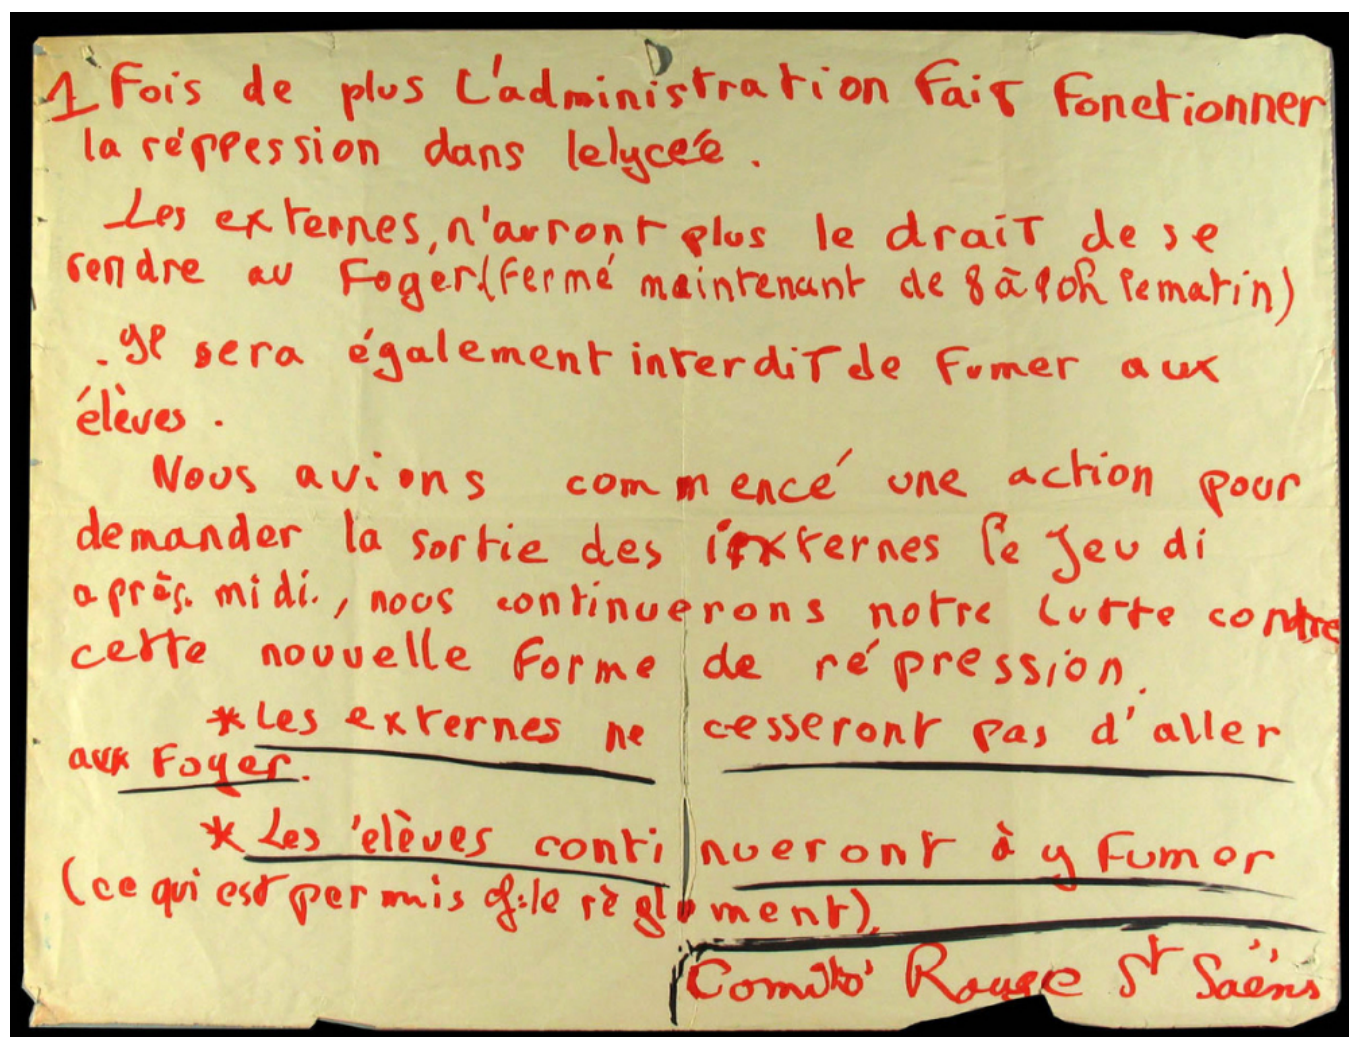 1 Fois de plus L'administration Fait Fonctionner
la réppession dans le lycée.
Les externes, n'auront plus le drait de se
rendre au Foyer (Fermé maintenant de 8 à 10h le matin)
. Il sera également interdit de Fumer aux
élèves.
Nous avions commencé une action pour
demander la sortie des internes le Jeudi
après. midi., nous continuerons notre Lutte contre
cette nouvelle Forme de répression.
*Les externes ne cesseront pas d'aller
aux Foyer.
*Les élèves continueront à y Fumer
(ce qui est permis cf: le règlement).
Comité Rouge St Saëns